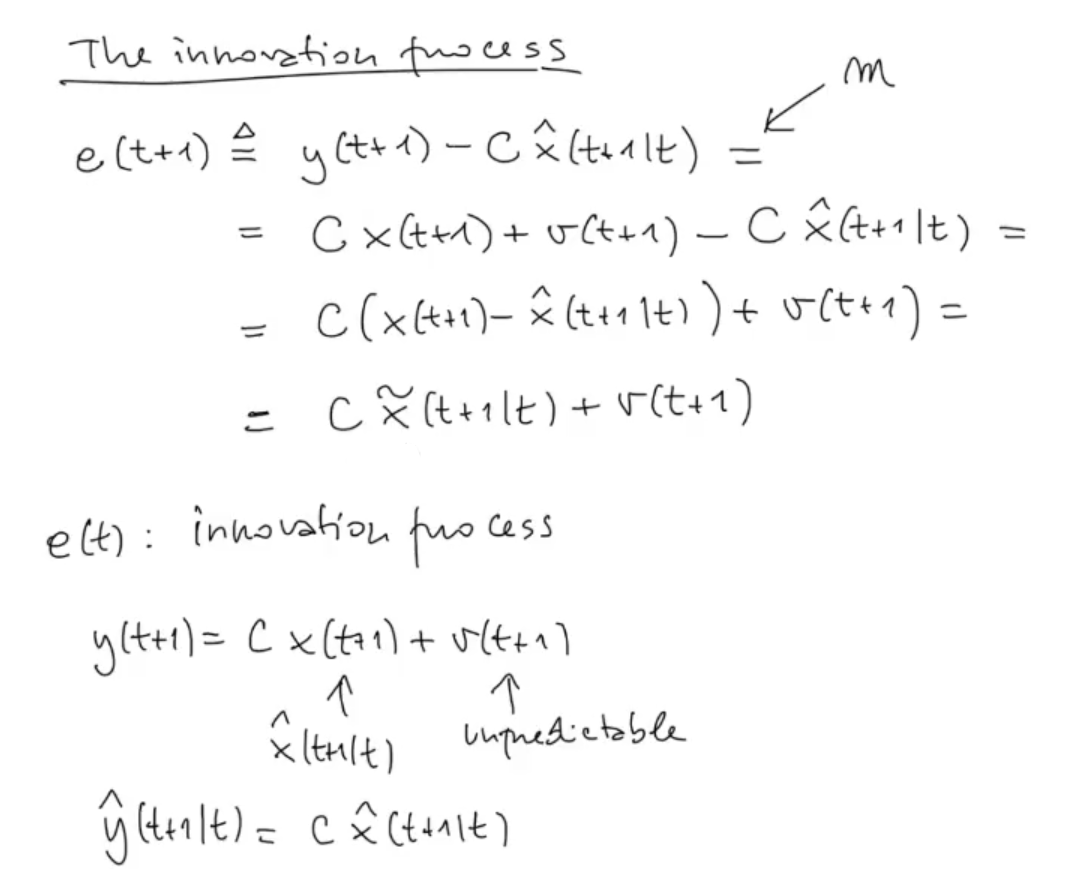 The innovation process
m
e(t+1) ≜ y(t+1) - C x̂(t+1|t) =
= C x(t+1) + v(t+1) - C x̂(t+1|t) =
= C(x(t+1) - x̂(t+1|t)) + v(t+1) =
= C x̃(t+1|t) + v(t+1)
e(t): innovation process
y(t+1) = C x(t+1) + v(t+1)
↑ ↑
x̂(t+1|t) unpredictable
ŷ(t+1|t) = C x̂(t+1|t)